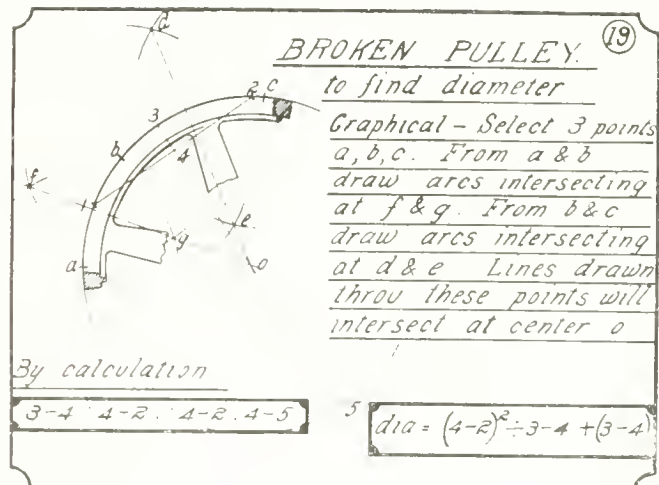 19
BROKEN PULLEY.
to find diameter
Graphical - Select 3 points
a, b, c. From a & b
draw arcs intersecting
at f & g. From b & c
draw arcs intersecting
at d & e Lines drawn
throu these points will
intersect at center o
d
2 c
3
b
4
1
f
g
e
o
a
By calculation
3-4 : 4-2 :: 4-2 : 4-5
5
dia = (4-2)² ÷ 3-4 + (3-4)